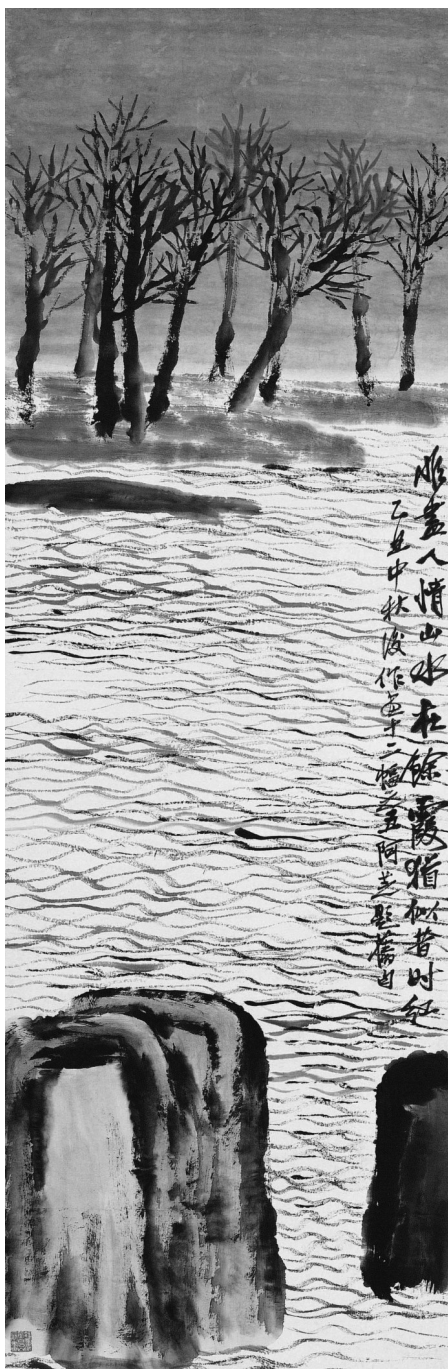 雕盡人情山水在餘霞猶似昔时紅
乙丑中秋後作画十二幅之五阿芝题舊句